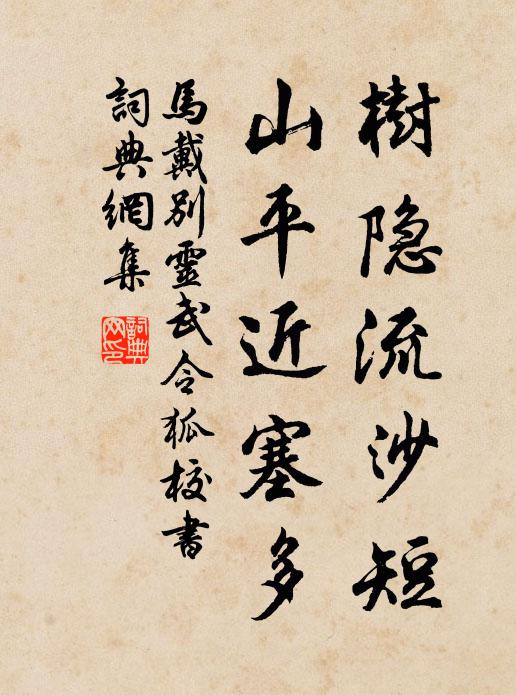 樹隐流沙短
山平近塞多
馬戴別靈武令狐校書
詞典網集
詞典網印